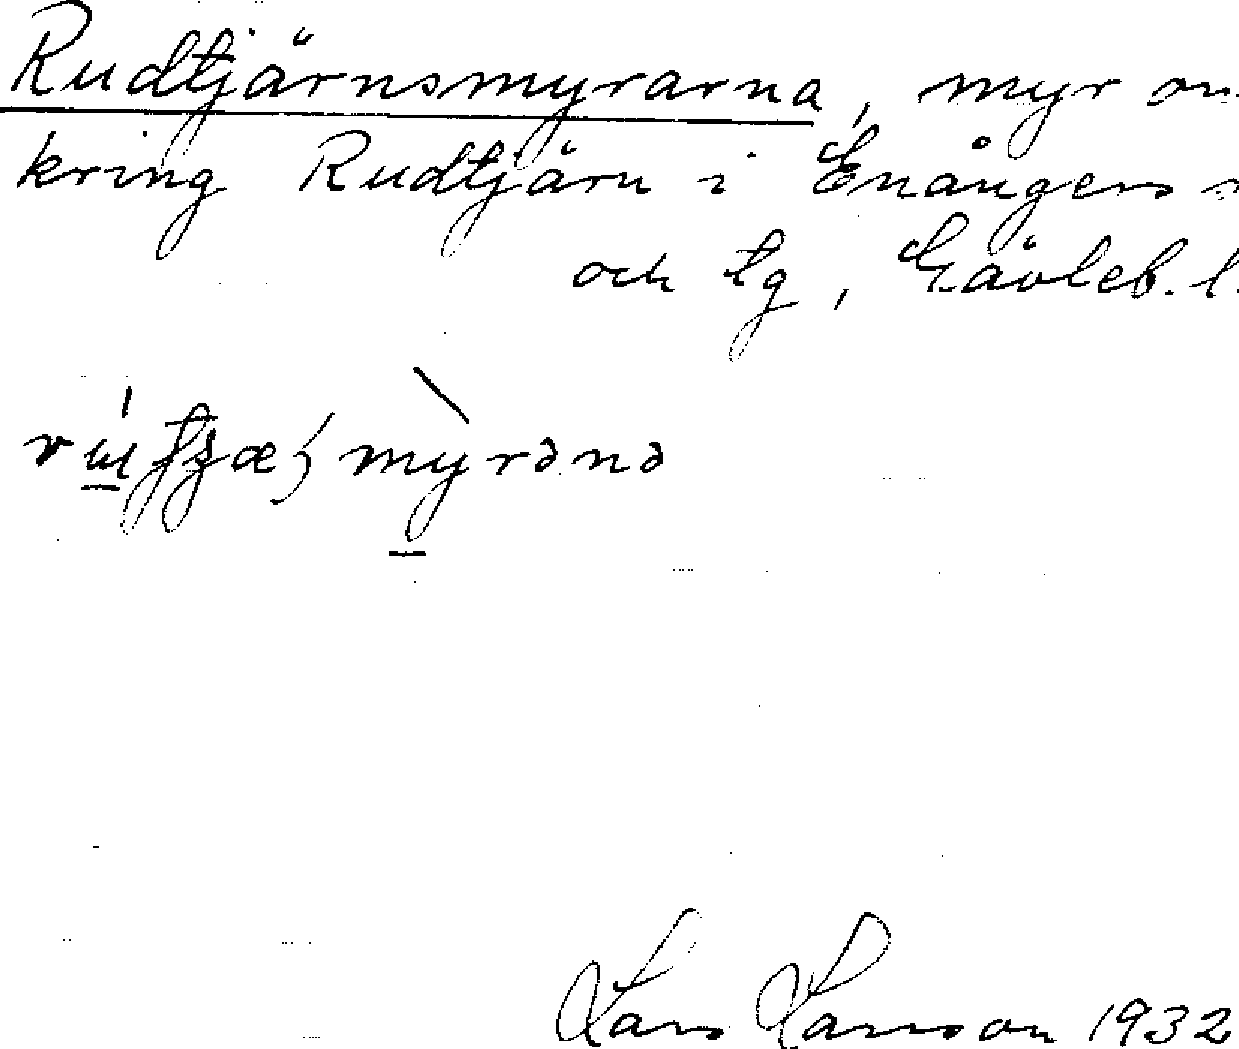 Rudtjärnsmyrarna, myr om-
kring Rudtjärn i Enångers s
och tg, Gävleb. l.
Lars Larsson 1932